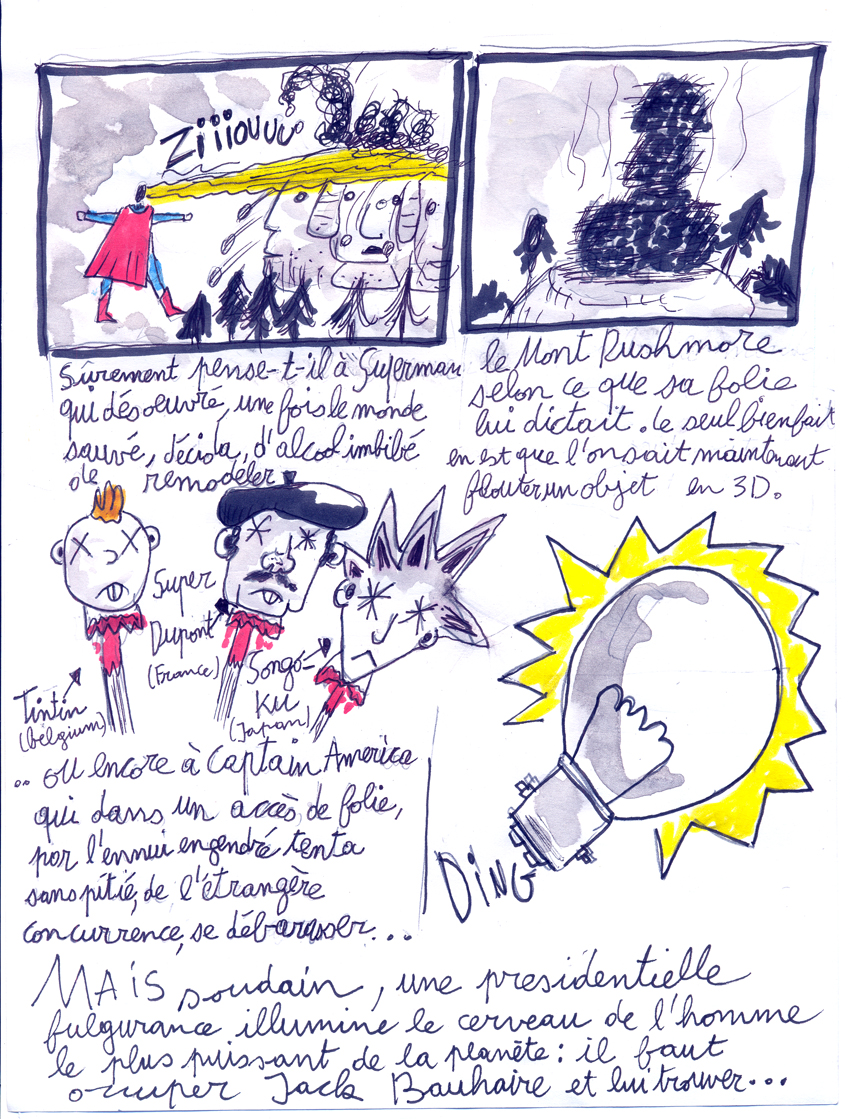 Ziiiouuu
Sûrement pense-t-il à Superman
qui désoeuvré, une fois le monde
sauvé, décida, d'alcool imbibé
de remodeler
le Mont Rushmore
selon ce que sa folie
lui dictait. le seul bienfait
en est que l'on sait maintenant
flouter un objet en 3D.
Tintin
(bélgium)
Super
Dupont
(France)
Songo-
KU
(Japan)
.. ou encore à Captain America
qui dans un accès de folie,
par l'ennui engendré tenta
sans pitié, de l'étrangère
concurrence, se débarasser...
DiNG
MAiS soudain, une presidentielle
fulgurance illumine le cerveau de l'homme
le plus puissant de la planète : il faut
occuper Jack Bauhaire et lui trouver...